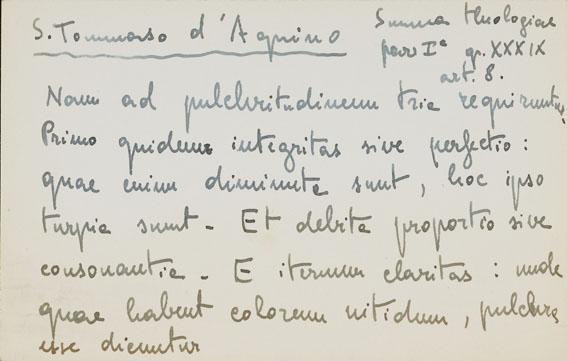 S. Tommaso d'Aquino
Summa theologiae
pars Iª q. XXXIX
art. 8.
Nam ad pulchritudinem tria requiruntur.
Primo quidem integritas sive perfectio:
quae enim diminuta sunt, hoc ipso
turpia sunt - Et debita proportio sive
consonantia - E iterum claritas: unde
quae habent colorem nitidum, pulchra
esse dicuntur